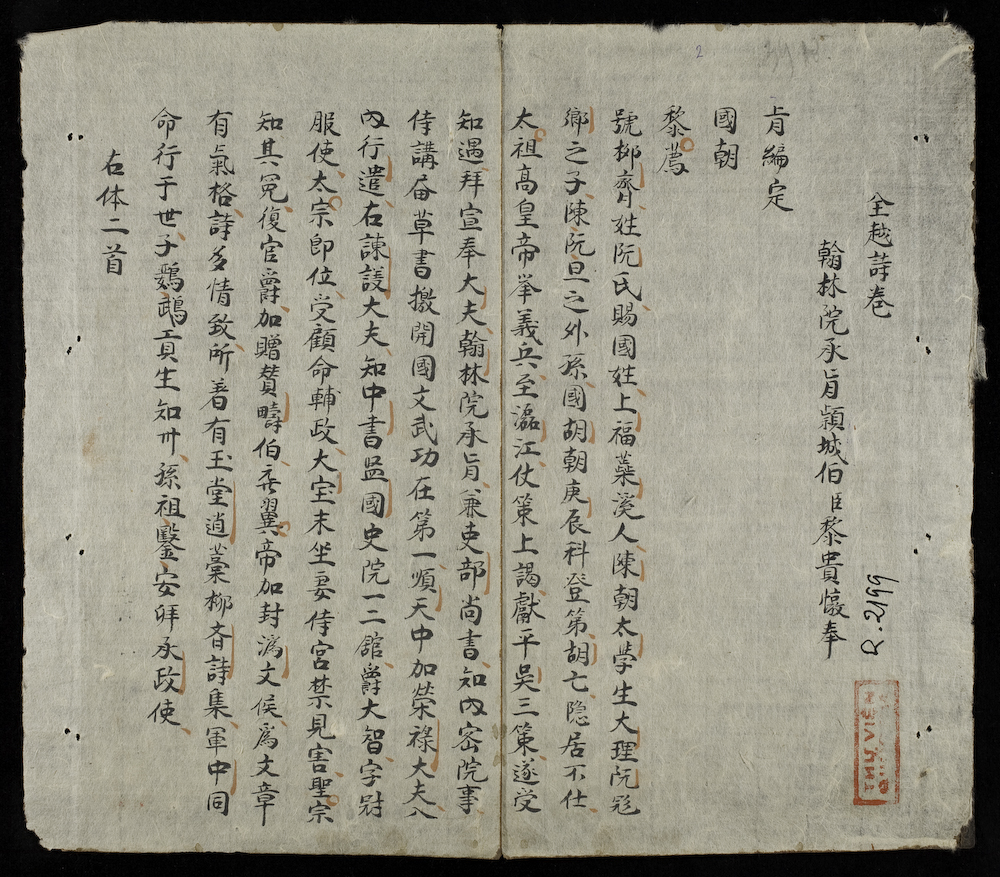 全越詩卷
翰林院承旨頴城伯臣黎貴惇奉
旨編定
國朝
黎薦
號抑齋姓阮氏賜國姓上福蕋溪人陳朝太學生大理阮冦
鄉之子陳阮旦之外孫國胡朝庚辰科登第胡亡隐居不仕
太祖高皇帝举義兵至瀘江仗策上謁獻平吳三策遂受
知遇拜宣奉大夫翰林院承旨兼吏部尚書知内密院事
侍講奋草書檄開國文武功在第一順天中加榮祿大夫入
内行遣右諫議大夫知中書监國史院一二舘爵大智字尉
服使太宗即位受顧命輔政大宝末坐妻侍宮禁見害聖宗
知其冤復官爵加贈賛疇伯 翼帝加封濟文侯為文章
有氣格詩多情致所著有玉堂逍藁柳斋詩集軍中同
命行于世子鸚鵡貢生知卅孫祖鑒安拜承政使
右体二首
2
R.2199
THU VIE